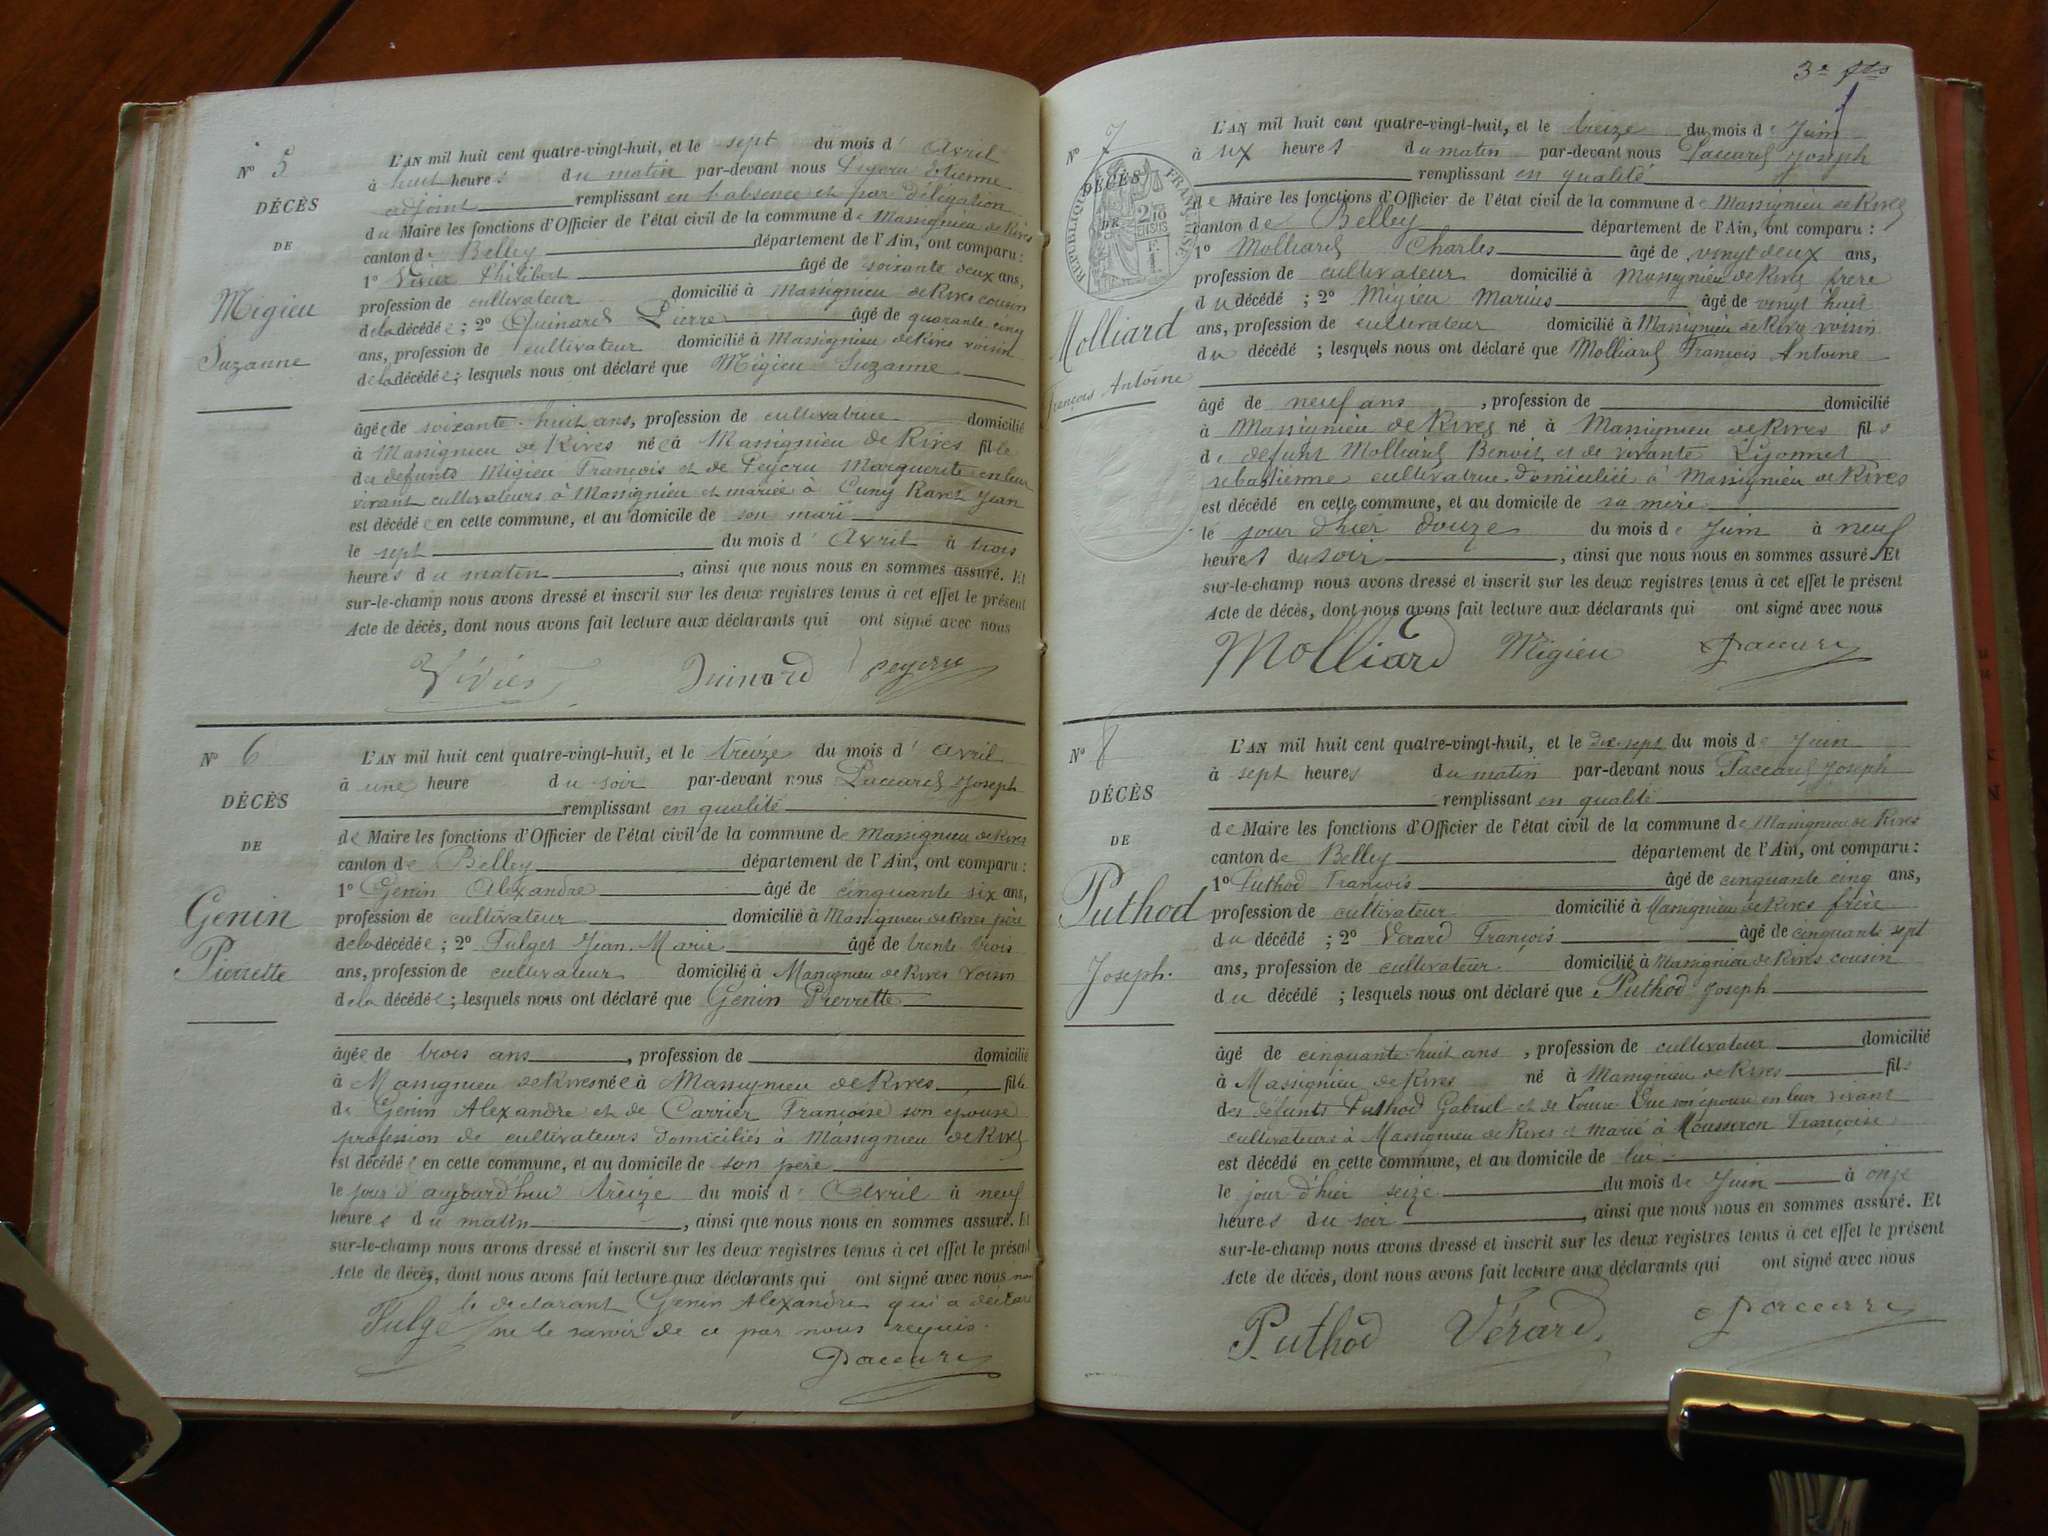 N° 5
DÉCÈS
DE
Migieu
Suzanne
L'AN mil huit cent quatre-vingt-huit, et le sept du mois d' Avril
à huit heures du matin par-devant nous Peycru Etienne
adjoint remplissant en l'absence et par délégation
du Maire les fonctions d'Officier de l'état civil de la commune de Massignieu de Rives
canton de Belley département de l'Ain, ont comparu :
1° Vivier Philibert âgé de soixante deux ans,
profession de cultivateur domicilié à Massignieu de Rives cousin
de la décédée ; 2° Quinard Pierre âgé de quarante cinq
ans, profession de cultivateur domicilié à Massignieu de Rives voisin
de la décédée ; lesquels nous ont déclaré que Migieu Suzanne
âgée de soixante huit ans, profession de cultivatrice domicilié
à Massignieu de Rives née à Massignieu de Rives fille
des défunts Migieu François et de Peycru Marguerite en leur
vivant cultivateurs à Massignieu et mariée à Cuny Ravet Jean
est décédée en cette commune, et au domicile de son mari
le sept du mois d' Avril à trois
heures du matin, ainsi que nous nous en sommes assuré. Et
sur-le-champ nous avons dressé et inscrit sur les deux registres tenus à cet effet le présent
Acte de décès, dont nous avons fait lecture aux déclarants qui ont signé avec nous
Quinard Peycru
N° 6
DÉCÈS
DE
Genin
Pierrette
L'AN mil huit cent quatre-vingt-huit, et le treize du mois d' Avril
à une heure du soir par-devant nous Paccard Joseph
remplissant en qualité
de Maire les fonctions d'Officier de l'état civil de la commune de Massignieu de Rives
canton de Belley département de l'Ain, ont comparu :
1° Genin Alexandre âgé de cinquante six ans,
profession de cultivateur domicilié à Massignieu de Rives père
de la décédée ; 2° Fulget Jean Marie âgé de trente trois
ans, profession de cultivateur domicilié à Massignieu de Rives voisin
de la décédée ; lesquels nous ont déclaré que Genin Pierrette
âgée de trois ans, profession de domicilié
à Massignieu de Rives née à Massignieu de Rives fille
de Genin Alexandre et de Carrier Françoise son épouse
profession de cultivateurs domiciliés à Massignieu de Rives
est décédée en cette commune, et au domicile de son père
le jour d'aujourd'hui treize du mois d' Avril à neuf
heures du matin, ainsi que nous nous en sommes assuré. Et
sur-le-champ nous avons dressé et inscrit sur les deux registres tenus à cet effet le présent
Acte de décès, dont nous avons fait lecture aux déclarants qui ont signé avec nous non
le déclarant Genin Alexandre qui a déclaré
Fulge ne le savoir de ce par nous requis.
Paccard
3e
N° 7
DÉCÈS
DE
RÉPUBLIQUE FRANÇAISE
Molliard
François Antoine
L'AN mil huit cent quatre-vingt-huit, et le treize du mois de Juin
à six heures du matin par-devant nous Paccard Joseph
remplissant en qualité
de Maire les fonctions d'Officier de l'état civil de la commune de Massignieu de Rives
canton de Belley département de l'Ain, ont comparu :
1° Molliard Charles âgé de vingt deux ans,
profession de cultivateur domicilié à Massignieu de Rives frère
du décédé ; 2° Migieu Marius âgé de vingt huit
ans, profession de cultivateur domicilié à Massignieu de Rives voisin
du décédé ; lesquels nous ont déclaré que Molliard François Antoine
âgé de neuf ans, profession de domicilié
à Massignieu de Rives né à Massignieu de Rives fils
de défunt Molliard Benoit et de vivante Lyonnet
sebastienne cultivatrice domiciliée à Massignieu de Rives
est décédé en cette commune, et au domicile de sa mère
le jour d'hier douze du mois de Juin à neuf
heures du soir, ainsi que nous nous en sommes assuré. Et
sur-le-champ nous avons dressé et inscrit sur les deux registres tenus à cet effet le présent
Acte de décès, dont nous avons fait lecture aux déclarants qui ont signé avec nous
Molliard Migieu Paccard
N° 8
DÉCÈS
DE
Puthod
Joseph.
L'AN mil huit cent quatre-vingt-huit, et le dix-sept du mois de Juin
à sept heures du matin par-devant nous Paccard Joseph
remplissant en qualité
de Maire les fonctions d'Officier de l'état civil de la commune de Massignieu de Rives
canton de Belley département de l'Ain, ont comparu :
1° Puthod François âgé de cinquante cinq ans,
profession de cultivateur domicilié à Massignieu de Rives frère
du décédé ; 2° Verard François âgé de cinquante sept
ans, profession de cultivateur domicilié à Massignieu de Rives cousin
du décédé ; lesquels nous ont déclaré que Puthod Joseph
âgé de cinquante huit ans, profession de cultivateur domicilié
à Massignieu de Rives né à Massignieu de Rives fils
des défunts Puthod Gabriel et de son épouse en leur vivant
cultivateurs à Massignieu de Rives et marié à Mousseron Françoise
est décédé en cette commune, et au domicile de lui
le jour d'hier seize du mois de Juin à onze
heures du soir, ainsi que nous nous en sommes assuré. Et
sur-le-champ nous avons dressé et inscrit sur les deux registres tenus à cet effet le présent
Acte de décès, dont nous avons fait lecture aux déclarants qui ont signé avec nous
Puthod Vérard Paccard